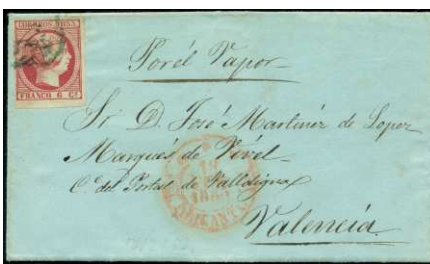 CORREOS 1853
FRANCO 6 Cs
Por el Vapor
Sr. D. José Martinez de Lopez
Marqués de
C. del Portal de Valldigna
ALICANTE
Valencia